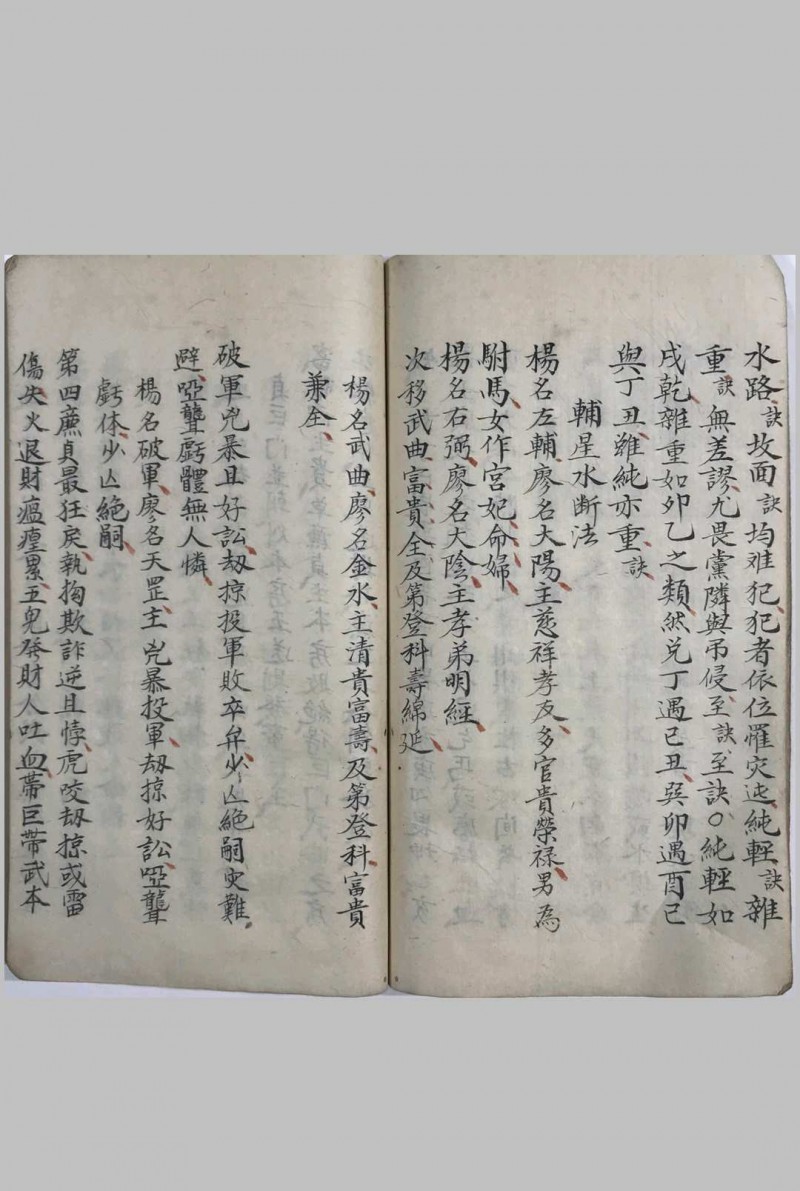 水路訣坟面訣均难犯犯者依位罹灾迍純輕訣雜
重訣無差謬尤畏黨隣與吊侵至訣至訣〇純輕如
戌乾雜重如夘乙之類然兑丁遇己丑巽卯遇酉己
與丁丑雖純亦重訣
輔星水断法
楊名左輔廖名太陽主慈祥孝友多官貴榮禄男為
駙馬女作宮妃命婦
楊名右弼廖名太陰主孝弟明經
次移武曲富貴全及第登科壽綿延
楊名武曲廖名金水主清貴富壽及第登科富貴
兼全
破軍兇暴且好訟刼掠投軍敗卒弁少亾絕嗣灾難
避啞聾虧體無人憐
楊名破軍廖名天罡主兇暴投軍刼掠好訟啞聾
虧体少亾絕嗣
第四廉貞最狂戾執拗欺詐逆且悖虎咬刼掠或雷
傷失火退財瘟瘽累五鬼發財人吐血帶巨帶武本